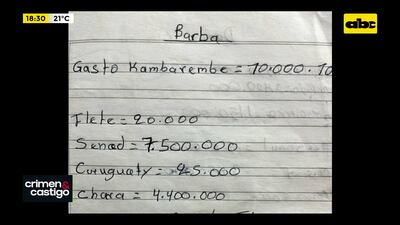 18:30 21°C
abc
Barba
Gasto Kambarembe = 10.000.10
Flete = 20.000
Senad = 7.500.000
Curuguaty = 25.000
Chara = 4.400.000
crimen&
castigo